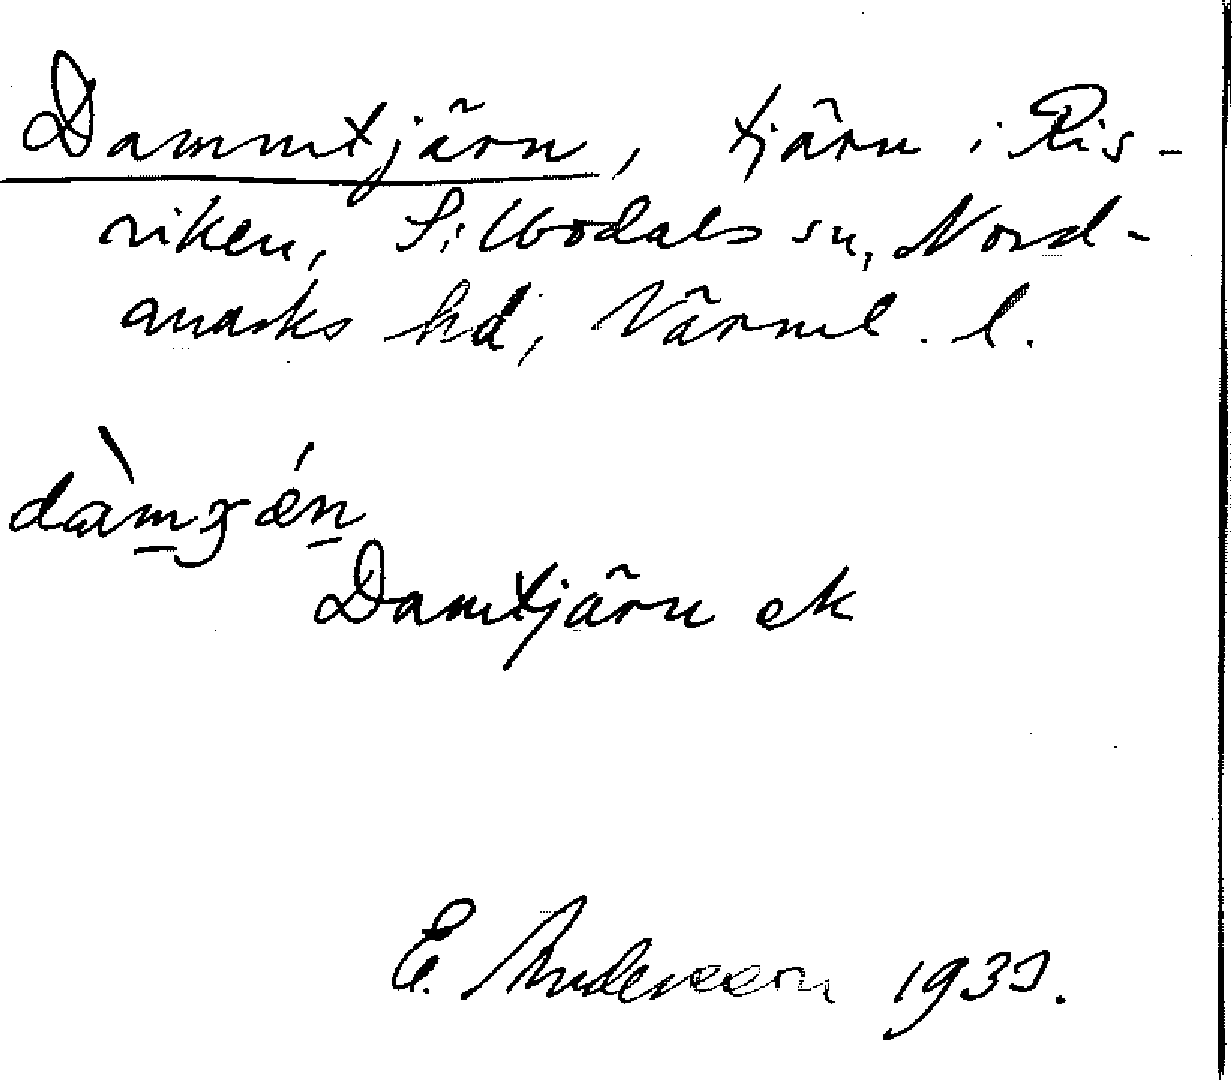 Dammtjärn, tjärn i Ris-
riken, Silbodals sn, Nord-
marks hd, Värml. l.
Damtjärn ek
E. Andersson 1933.